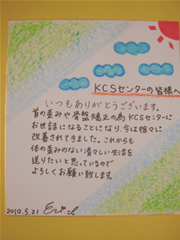 KCSセンターの皆様へ
いつもありがとうございます。
首の歪みや骨盤矯正の為KCSセンターに
お世話になることになり、今は徐々に
改善されてきました。これからも
体の歪みのない清々しい生活を
送りたいと思っているので
よろしくお願い致します。
2010.5.21